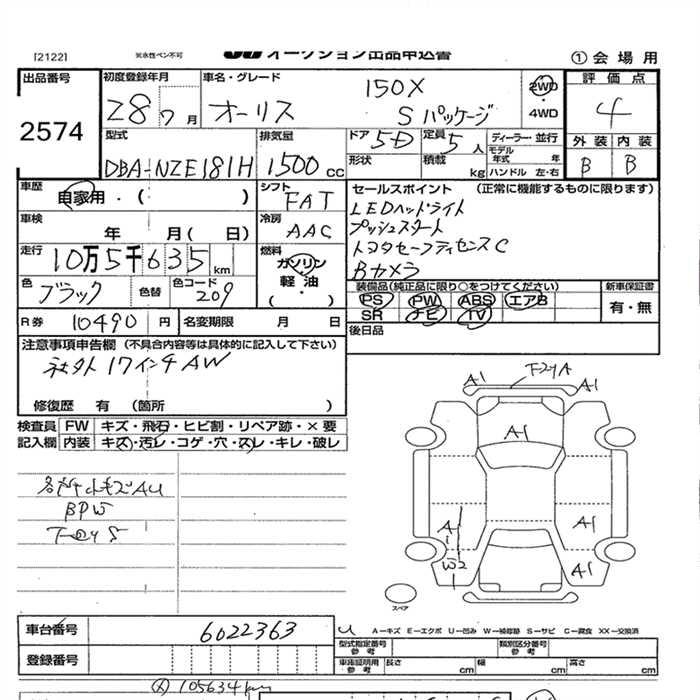 [2122]
オークション出品申込書
① 会場用
出品番号
2574
初度登録年月
28 7 月
車名・グレード
オーリス
150X
Sパッケージ
2WD
・
4WD
評価点
4
外装 内装
B B
型式
DBA-NZE181H
排気量
1500 cc
ドア
5D
形状
定員
5 人
積載
kg
ディーラー・並行
モデル年式 年
ハンドル 左・右
車歴
自家用・( )
車検
年 月( 日)
走行
10万5千635 km
色
ブラック
色替
色コード
209
シフト
FAT
冷房
AAC
燃料
ガソリン
軽油
・( )
セールスポイント (正常に機能するものに限ります)
LEDヘッドライト
プッシュスタート
トヨタセーフティセンスC
Bカメラ
装備品(純正品に限り○をつけてください)
PS PW ABS エアB
SR ナビ TV
新車保証書
有・無
後日品
R券 10490 円
名変期限 月 日
注意事項申告欄 (不具合内容等は具体的に記入して下さい)
社外17インチAW
修復歴 有 (箇所 )
検査員 FW キズ・飛石・ヒビ割・リペア跡・×要
記入欄 内装 キズ・汚レ・コゲ・穴・スレ・キレ・破レ
各所小キズAU
BPW
A1
A1
A1
A1
W2
A1
A1
スペア
車台番号
6022363
登録番号
U A−キズ E−エクボ U−凹み W−補修跡 S−サビ C−腐食 XX−交換済
型式指定番号
参考
類別区分番号
参考
車庫証明用
参考
長さ cm
幅 cm
高さ cm
105634km